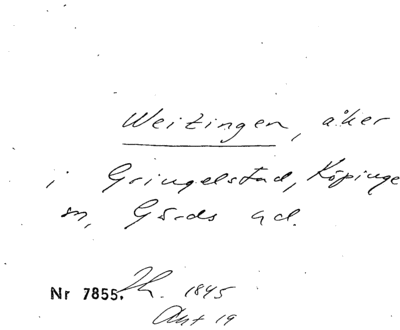 Weitzingen, åker
i Gringelstad, Köpinge
sn, Gärds hd.
Nr 7855. Lh. 1845
Akt 19